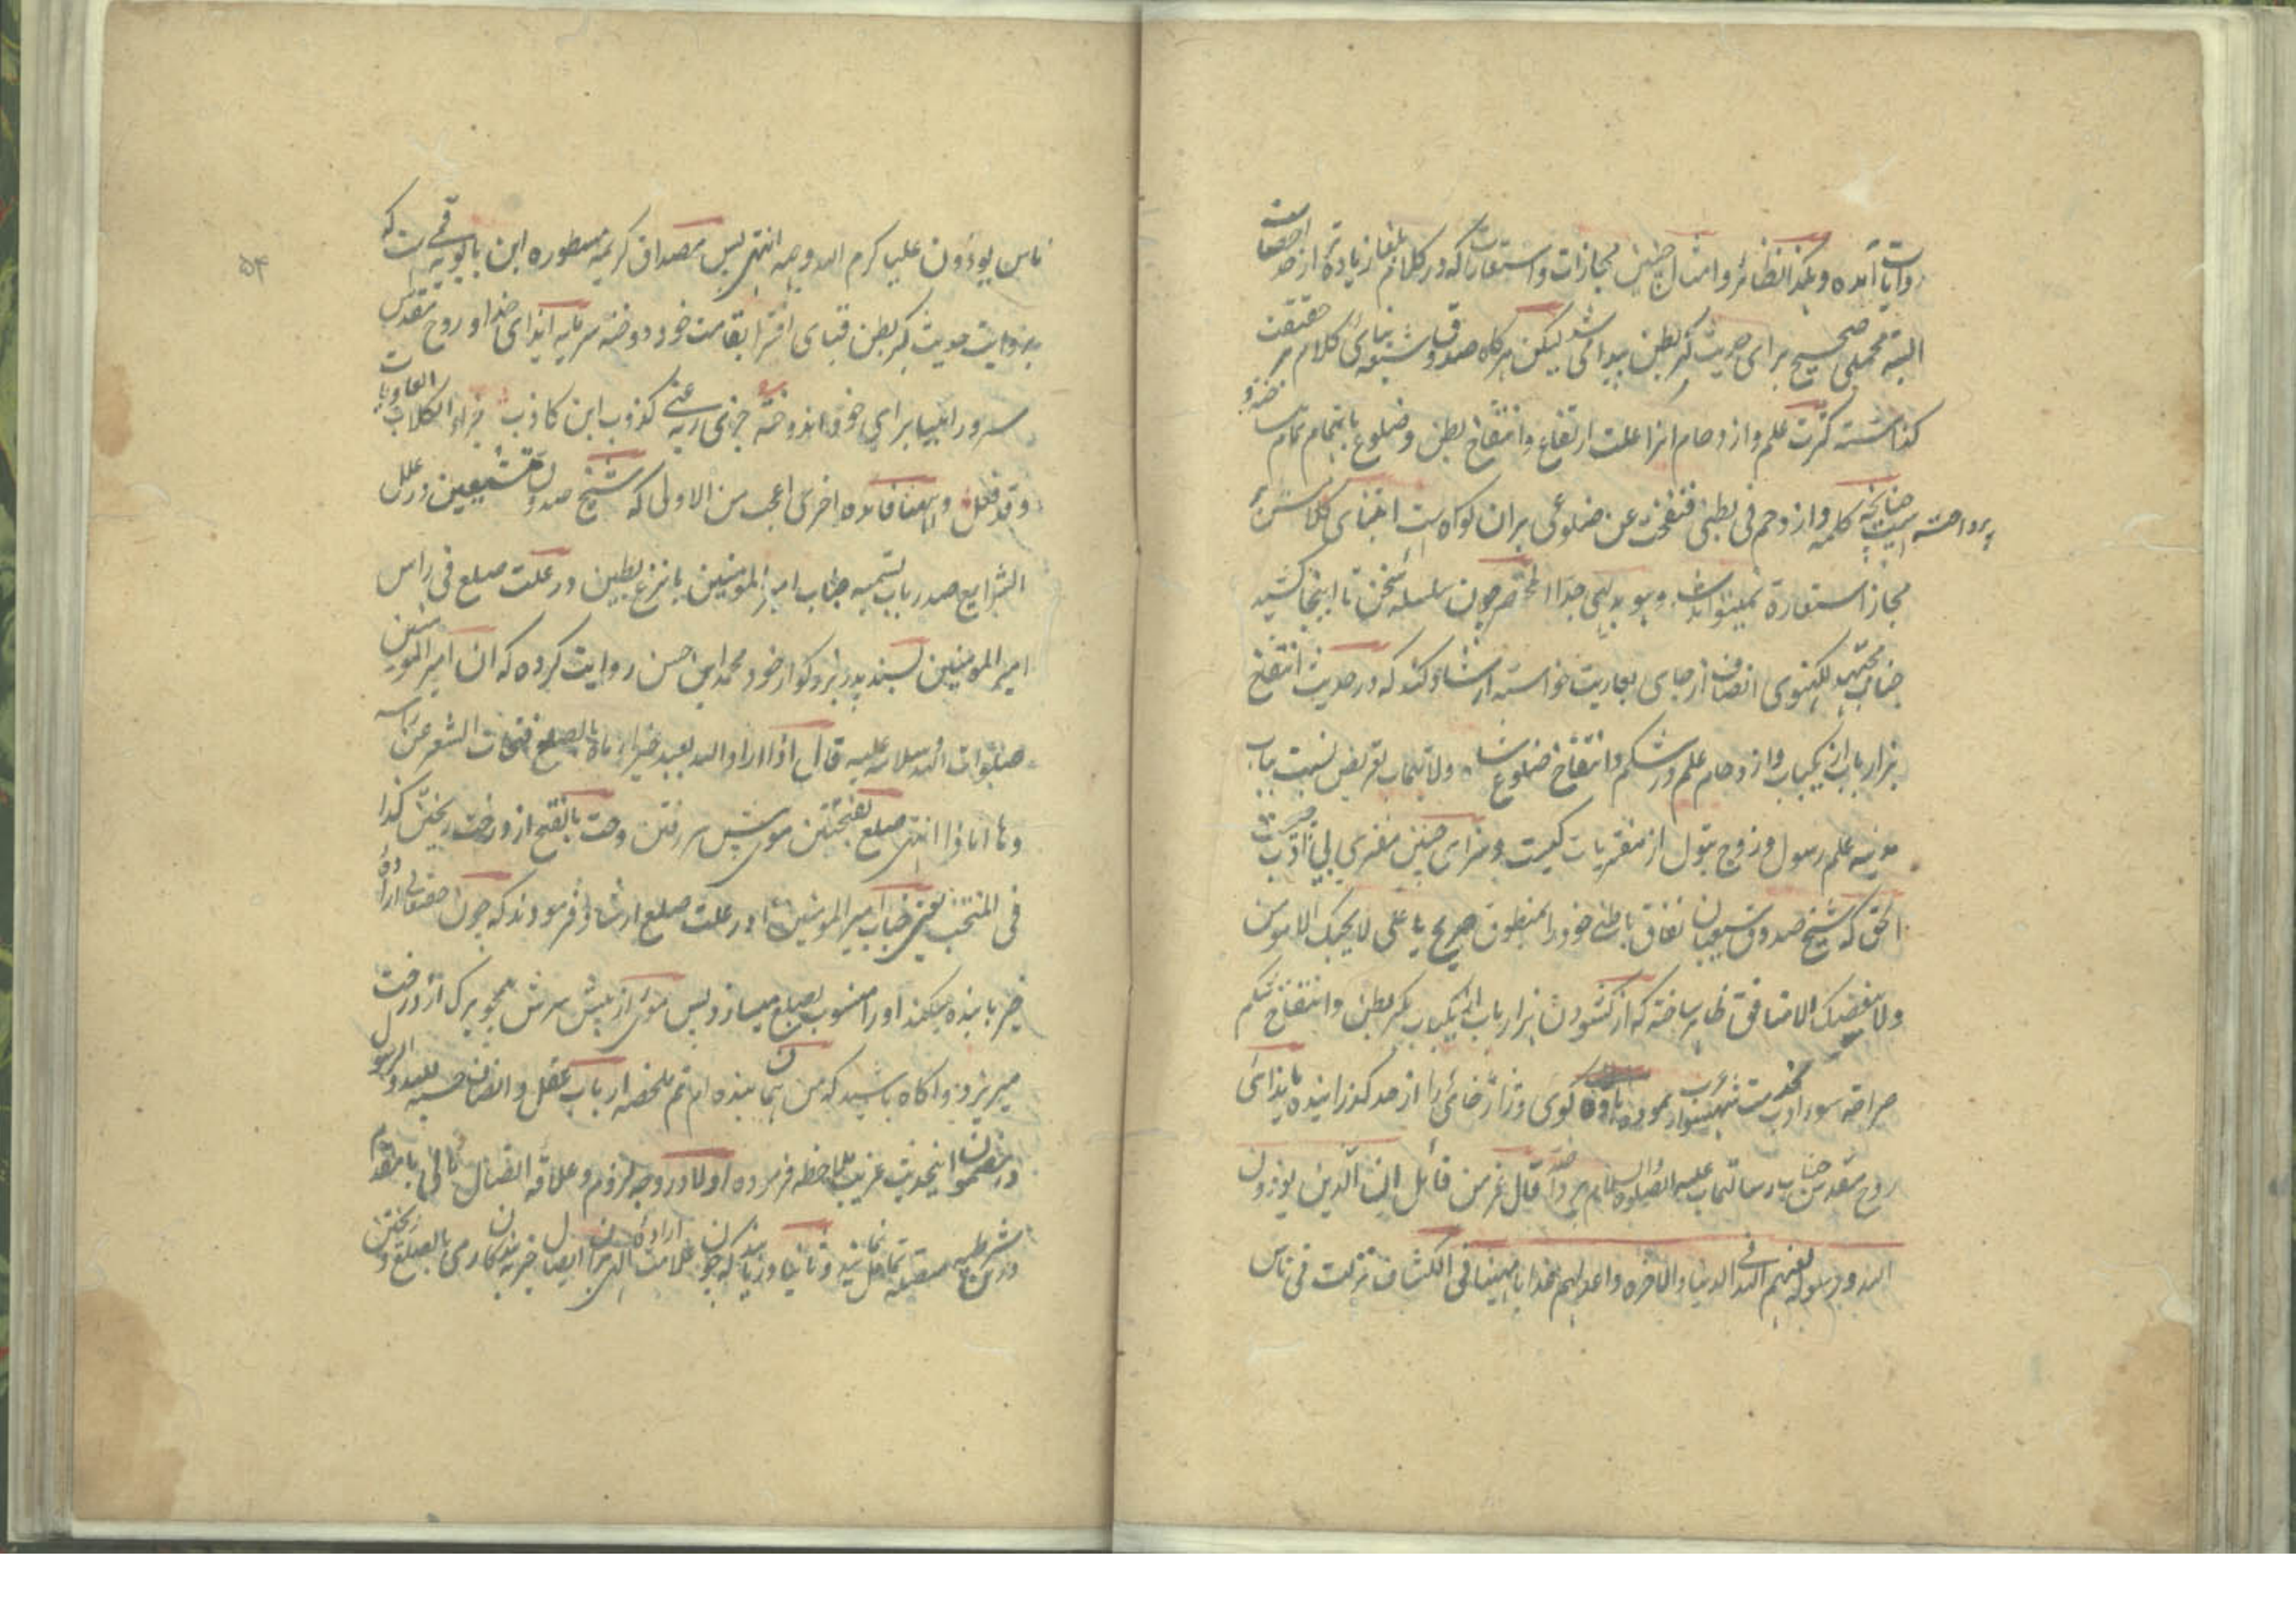 روایات آمده و هکذا نظائر و امثال چنین مجازات و استعارات که در کلام بلغا زیاده تر از حد احصاست
البته محملی صحیح برای حدیث کبر بطن پیدا می شد لیکن هرگاه صدوق شیعه بنای کلام بر حقیقت
گذاشته کثرت علم و ازدحام انرا علت ارتفاع و انتفاخ بطن و ضلوع باهتمام تمام
پرداخته چنانچه کلمه و ازدحم فی بطنی فنفخت عن ضلوعی بران گواه است ابتنای کلامش
مجاز استعارة نمیتواند شد و هو بدیهی جدا المختصر چون سلسله سخن تا اینجا کشید
جناب مجتهد لکهنوی انصاف از جای بعاریت خواسته ارشاد کند که در حدیث انتفاخ
هزار باب از یکباب و ازدحام علم در شکم و انتفاخ ضلوع نسبت بباب
مدینه علم رسول و زوج بتول از مفتریات کیست و سزای چنین مفتری بی ادب
الحق که شیخ صدوق شیعیان نفاق باطنی خود را بمنطوق صریح یا علی لا یحبک الا مومن
ولا یبغضک الا منافق ظاهر ساخته که از کشودن هزار باب از یکباب بکبر بطن و انتفاخ شکم
صراحة سوء ادب نموده یاوه گوی و ژاژ خائی را از حد گذرانیده بایذای
روح مقدس جناب رسالتماب علیه الصلوة والسلام قال عز من قائل ان الذین یوذون
الله و رسوله لعنهم الله فی الدنیا والاخره واعد لهم عذابا مهینا فی الکشاف نزلت فی ناس
۵۴
ناس یوذون علیا کرم الله وجهه انتهی پس مصداق کریمه مسطوره ابن بابویه قمی ست که
بروایت حدیث کبر بطن قبای افترا بقامت خود دوخته سرمایه ایذای خدا و روح مقدس
سرور انبیا برای خود اندوخته جزی ربه عنی کذوب ابن کاذب جزاء الکلاب العاویات
وقد فعل و ههنا فائده اخری اعجب من الاولی که شیخ صدوق متشیعین در علل
الشرایع صدر باب تسمیه جناب امیر المومنین بانزع بطین در علت صلع فی راس
امیر المومنین بسند پدر بزرکوار خود محمد ابن حسن روایت کرده که ان امیر المومنین
صلوات الله وسلامه علیه قال اذا اراد الله بعبد خیرا رماه بالصلع فتحات الشعر عن راسه
وها انا ذا انتهی صلع بفتحتین موی پیش سر رفتن وحت بالفتح از درخت ریختن کذا
فی المنتخب یعنی جناب امیر المومنین در علت صلع ارشاد فرمودند که چون حقتعالی اراده
خیر با بنده میکند اورا منسوب بصلع میسازد پس موی از پیش سرش همچو برگ از درخت
میریزد و اگاه باشید که من همان بنده ام تم ملخصه ارباب عقل و انصاف حسبة لله و للرسول
در مضمون اینحدیث غریب ملاحظه فرموده اولا در وجه لزوم و علاقه اتصال تالی با مقدم
در شرطیه متصله تامل نمایند و ثانیا دریابند که چون علامت اراده الهی برای ایصال خیر به بندگان رمی بالصلع و ریختن